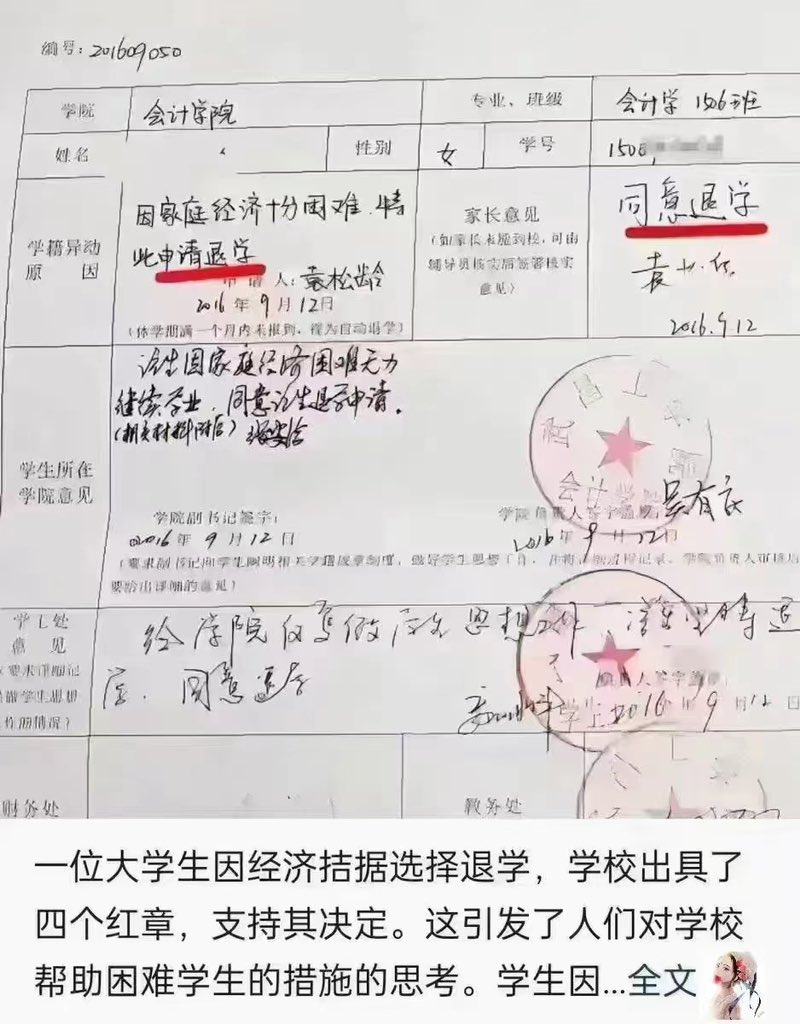 编号：201609050
学院 会计学院 专业、班级 会计学 1506班
姓名 性别 女 学号 1506
学籍异动
原 因
因家庭经济十分困难，特
此申请退学
申请人：袁松龄
2016年9月12日
（休学期满一个月内未报到，视为自动退学）
家长意见
（如家长未能到校，可由
辅导员核实后签署核实
意见）
同意退学
2016.9.12
学生所在
学院意见
该生因家庭经济困难无力
继续学业，同意该生退学申请。
（相关材料附后）
学院副书记签字：
2016年9月12日
学院负责人签字盖章：吴有庆
2016年9月12日
（要求副书记向学生阐明相关学籍规章制度，做好学生思想工作，并将详细过程记录。学院负责人审核后
要给出详细的意见）
学工处
意 见
（要求详细记
录做学生思想
工作的情况）
经学院仅 做 思想工作 退
学，同意退学
负责人签字盖章：
2016年9月12日
财务处 教务处
一位大学生因经济拮据选择退学，学校出具了
四个红章，支持其决定。这引发了人们对学校
帮助困难学生的措施的思考。学生因...全文